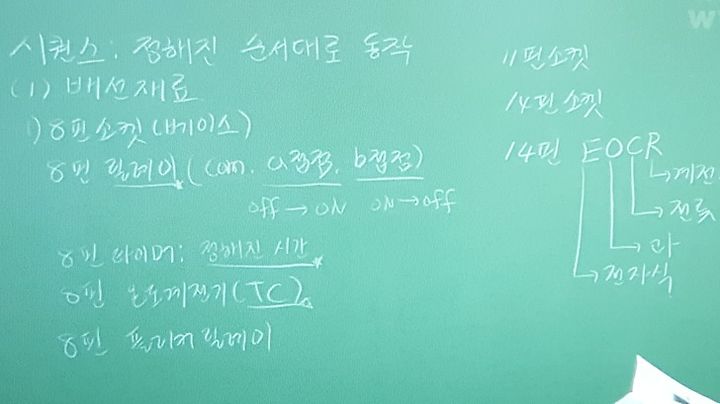 시퀀스: 정해진 순서대로 동작
(1) 배선재료
1) 8핀소켓(베이스)
8핀 릴레이(com. a접점, b접점)
off → ON ON → off
8핀 타이머: 정해진 시간
8핀 온도계전기(TC)
8핀 플리커릴레이
11핀소켓
14핀소켓
14핀 EOCR
→ 계전
→ 전류
→ 과
→ 전자식
W